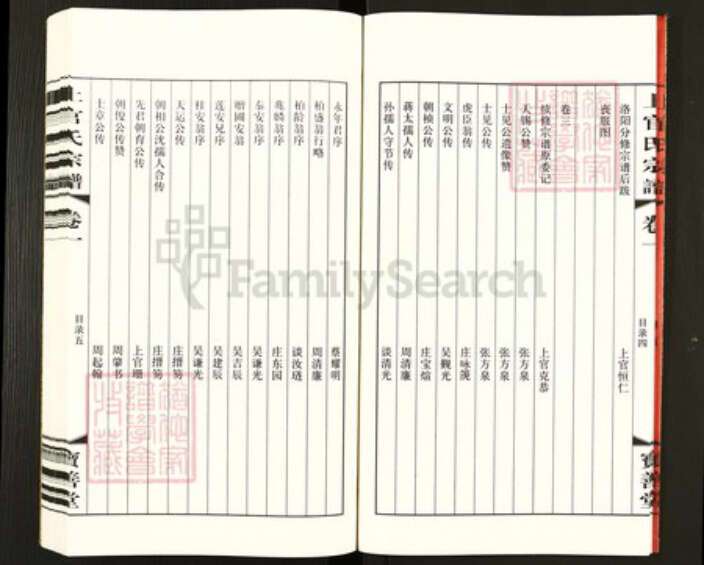 上官氏宗譜 卷一
目录四
寶善堂
洛阳分修宗谱后跋 上官恒仁
丧服图
卷三
续修宗谱原委记 上官克恭
天锡公赞 吴谦光
士见公遗像赞 张方泉
士见公传 张方泉
虎臣翁传 庄咏
文明公传 吴觐光
朝桢公传 庄宝煊
蒋太孺人传 周清廉
孙孺人守节传 谈清光
永年君序 蔡耀明
柏盛翁行略 周清廉
柏龄翁序 谈汝琏
兆麟翁序 庄东园
泰安翁序 吴谦光
赠国安翁 吴吉辰
莲安兄序 吴建辰
桂安翁序 吴谦光
大运公传 庄搢笏
朝相公沈孺人合传 庄搢笏
先君朝育公传 上官珊
朝俊公传赞 周肇书
士章公传 周起翰
上官氏宗譜 卷一
目录五
寶善堂
FamilySearch